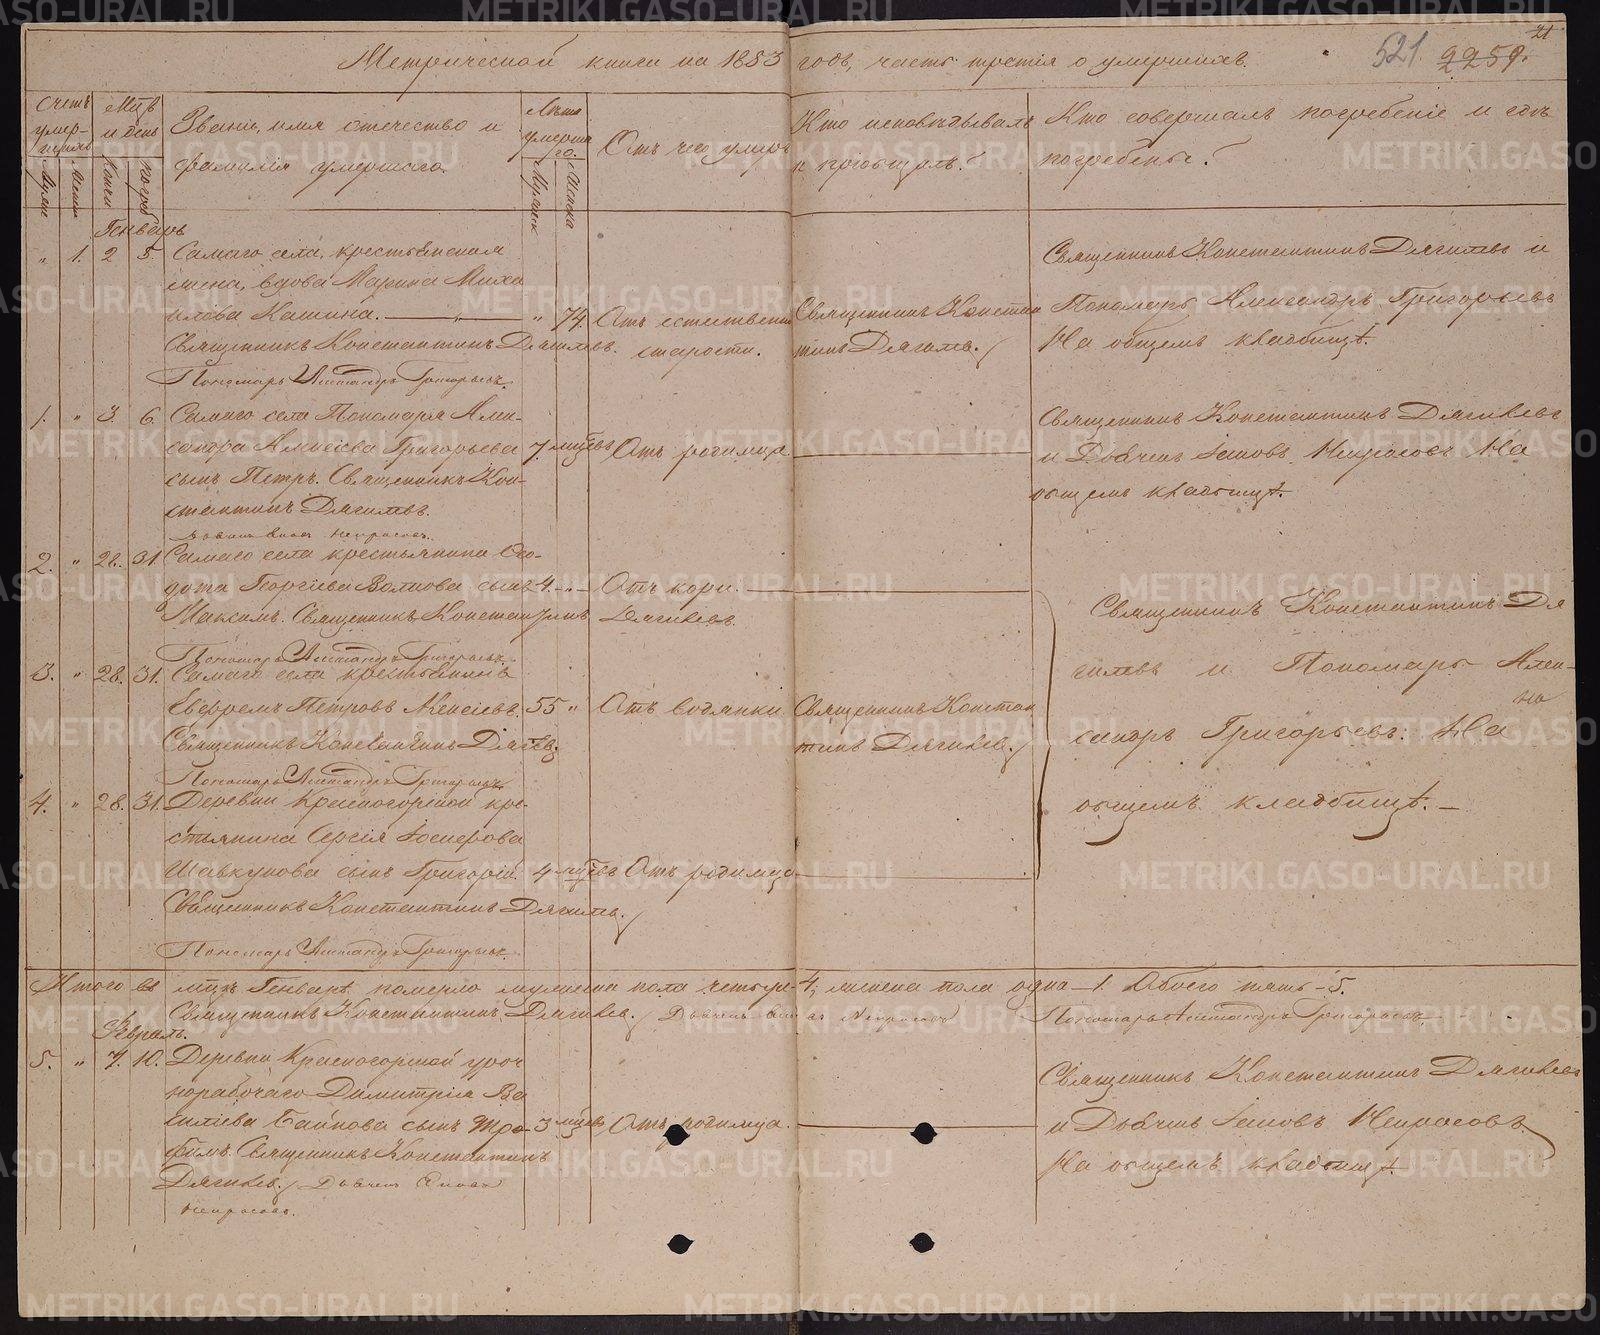 21
521. 2259.
Метрической книги на 1883 годъ, часть третія о умершихъ.
Счетъ умершихъ
Мужск.
Женск.
Мѣсяцъ и день
Конч.
Погреб.
Званіе, имя отечество и
фамилія умершаго.
Лѣта
умершаго.
Мужск.
Женска
Отъ чего умеръ
Кто исповѣдывалъ
и пріобщалъ?
Кто совершалъ погребеніе и гдѣ
погребены?
Генварь
„ 1. 2 5. Самаго села, крестьянская
жена, вдова Марина Миха
илова Кашина. „ 74. Отъ естествен
Священникъ Константинъ Дягилевъ.
старости.
Пономарь Александръ Григорьевъ.
Священникъ Констан
тинъ Дягилевъ.
Священникъ Константинъ Дягилевъ и
Пономарь Александръ Григорьевъ
На общемъ кладбищѣ.
1. „ 3. 6. Самаго села Пономаря Алек-
сандра Алексіева Григорьева 7 мцевъ Отъ родимца
сынъ Петръ. Священникъ Кон-
стантинъ Дягилевъ.
Дьячекъ Некрасовъ.
Священникъ Константинъ Дягилевъ
и Дьячекъ Іаковъ Некрасовъ На
общемъ кладбищѣ.
2. „ 28. 31. Самаго села крестьянина Ѳео-
дота Георгіева Волкова сынъ 4. „ Отъ кори.
Максимъ. Священникъ Константинъ Дягилевъ.
Пономарь Александръ Григорьевъ.
3. „ 28. 31. Самаго села крестьянинъ
Евфремъ Петровъ Алексіевъ. 55 „ Отъ водянки
Священникъ Константинъ Дягилевъ.
Пономарь Александръ Григорьевъ.
Священникъ Констан
тинъ Дягилевъ.
4. „ 28. 31. Деревни Красногорской кре-
стьянина Сергія
Шавкунова сынъ Григорій. 4 мцевъ Отъ родимца
Священникъ Константинъ Дягилевъ.
Пономарь Александръ Григорьевъ.
Священникъ Константинъ Дя
гилевъ и Пономарь Алек-
сандръ Григорьевъ. На
общемъ кладбищѣ.
Итого въ мцѣ Генварѣ померло мужеска пола четыре 4; женска пола одна 1. Обоего пять 5.
Священникъ Константинъ Дягилевъ. Дьячекъ Некрасовъ Пономарь Александръ Григорьевъ
Февраль.
5. „ 7. 10. Деревни Красногорской уроч
норабочаго Димитрія Ва
силіева Байнова сынъ Тро- 3 мцевъ Отъ родимца.
фимъ. Священникъ Константинъ
Дягилевъ. Дьячекъ
Некрасовъ.
Священникъ Константинъ Дягилевъ
и Дьячекъ Іаковъ Некрасовъ
На общемъ кладбищѣ.
METRIKI.GASO-URAL.RU